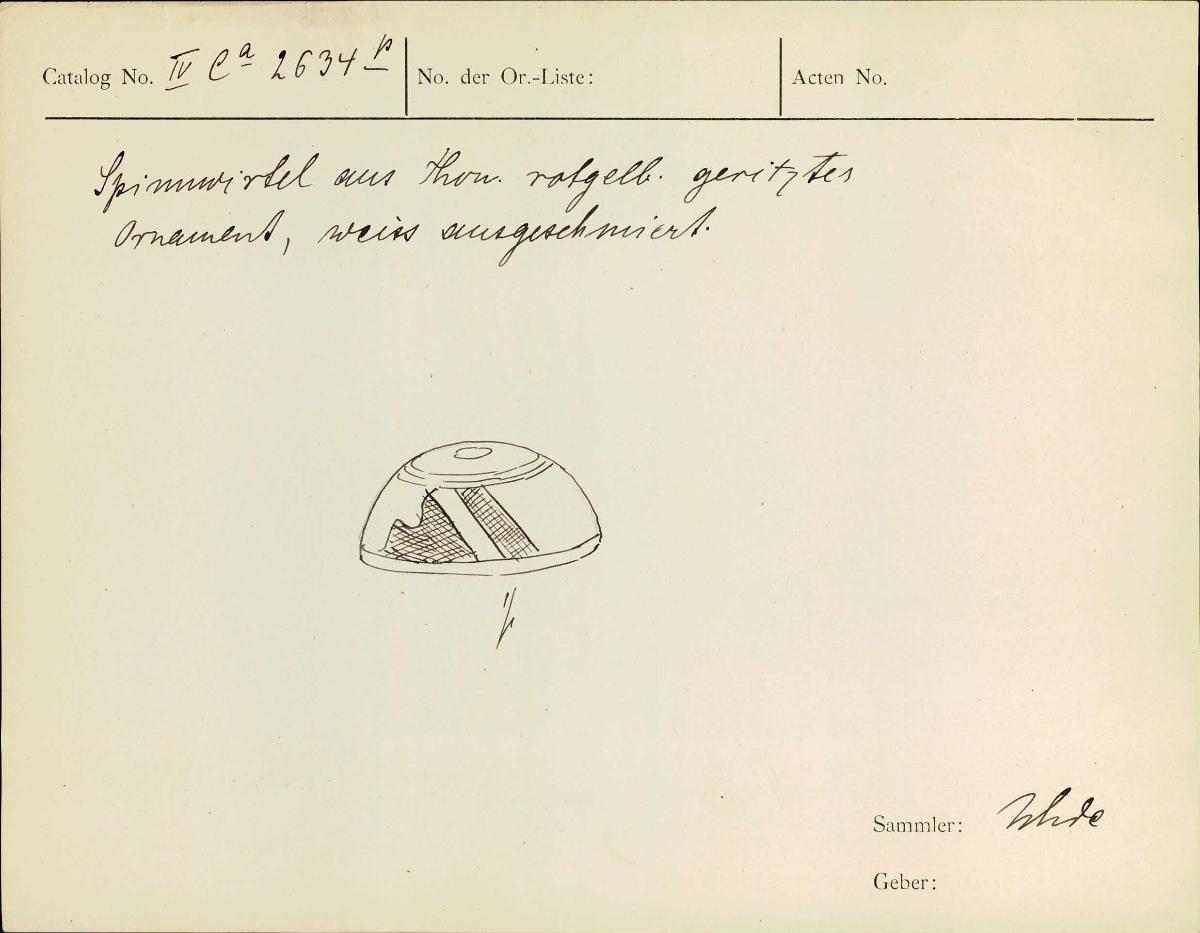 Catalog No. IV Ca 2634 p
No. der Or.-Liste:
Acten No.
Spinnwirtel aus Thon. rotgelb. geritztes
Ornament, weiss ausgeschmiert.
1/1
Sammler: Uhde
Geber: